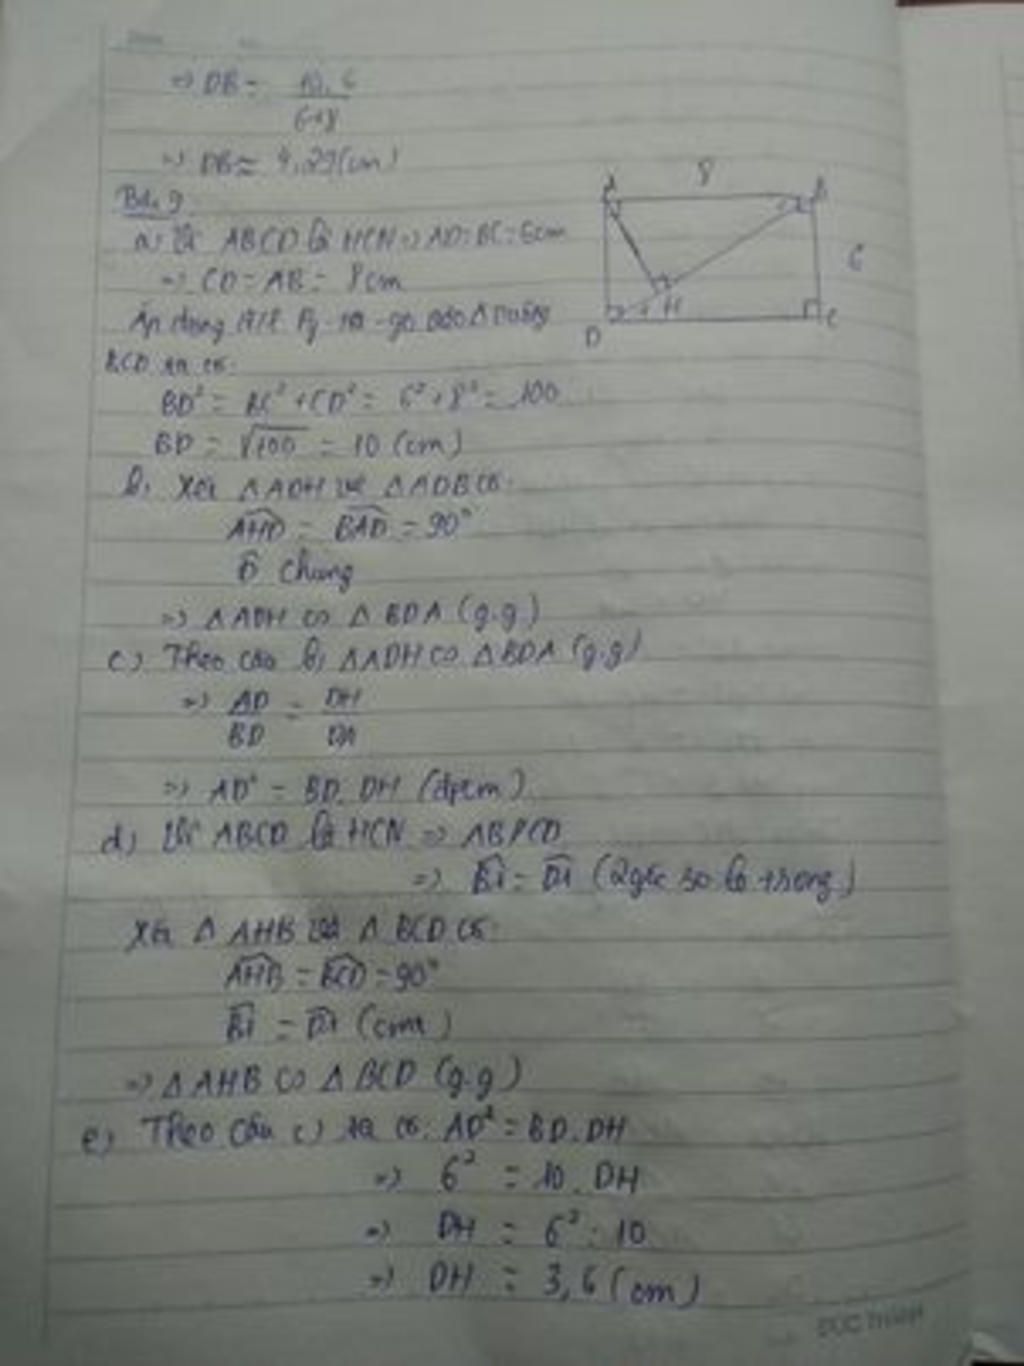 => DB = 10.6 / 6+8
=> DB ≈ 4,29(cm)
Bài 9
a) Vì ABCD là HCN => AD=BC=6cm
=> CD=AB= 8cm
Áp dụng ĐL Py-ta-go vào Δ vuông
BCD ta có:
BD² = BC²+CD² = 6²+8² = 100
BD = √100 = 10 (cm)
b) Xét ΔADH và ΔADB có:
AHD = BAD = 90°
D chung
=> ΔADH ∽ ΔBDA (g.g)
c) Theo câu b) ΔADH ∽ ΔBDA (g.g)
=> AD/BD = DH/DA
=> AD² = BD.DH (đpcm)
d) Vì ABCD là HCN => AB//CD
=> B1 = D1 (2góc so le trong)
Xét Δ AHB và Δ BCD có:
AHB = BCD = 90°
B1 = D1 (cmt)
=> ΔAHB ∽ ΔBCD (g.g)
e) Theo câu c) ta có: AD² = BD.DH
=> 6² = 10.DH
=> DH = 6² : 10
=> DH = 3,6(cm)
A 8 B
6
D 1 H C
ĐỨC THÀNH